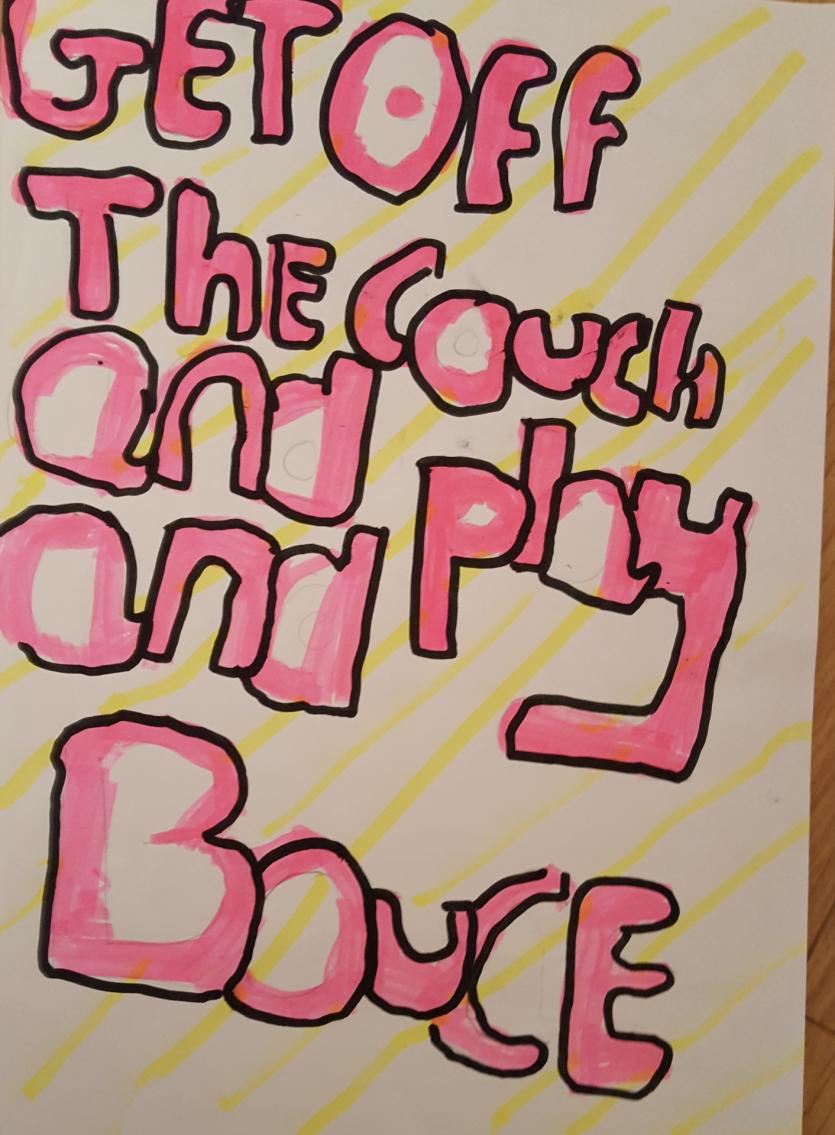 GET OFF
ThE couch
and play
and
BoucE